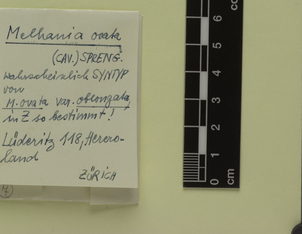 Melhania ovata
(CAV.) SPRENG.
wahrscheinlich SYNTYP
von
M. ovata var. oblongata
in Z so bestimmt!
Lüderitz 118, Herero-
land
ZÜRICH
6
5
4
3
2
1
0
cm
cm